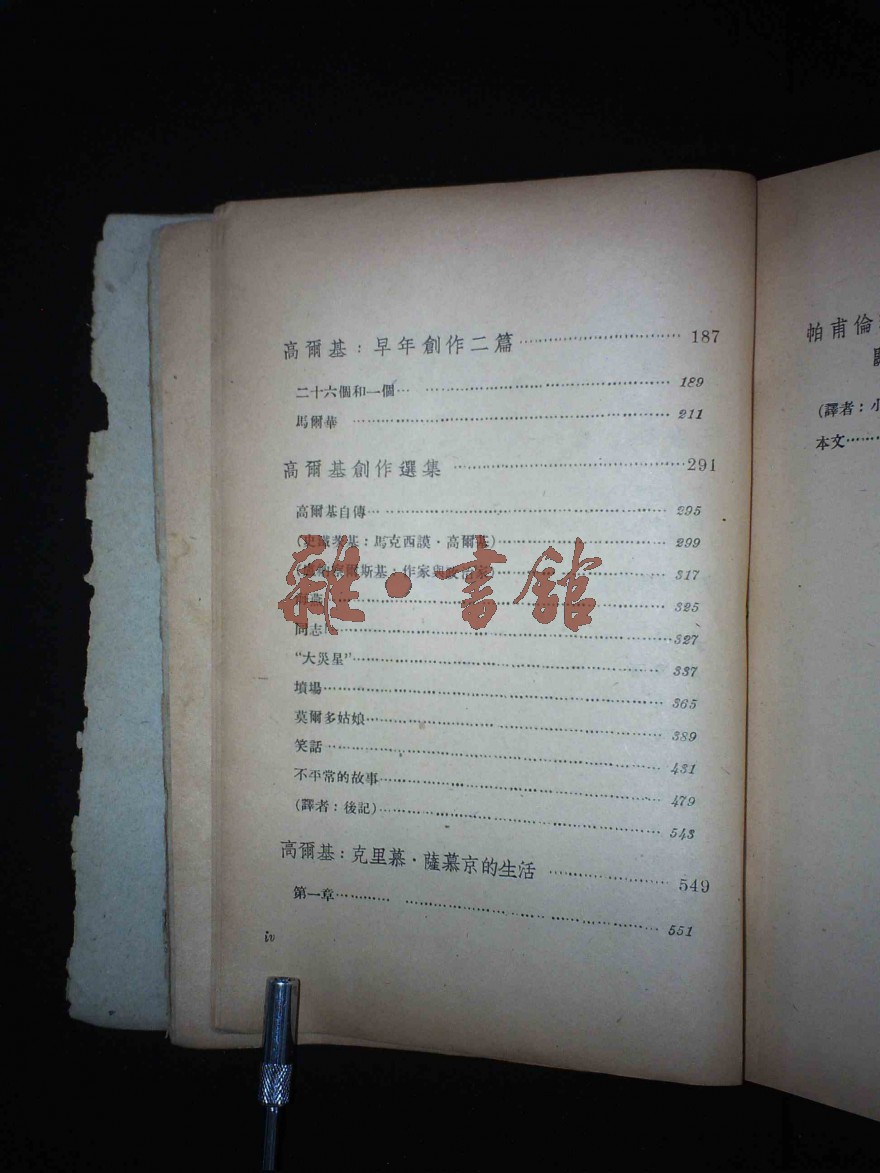 高爾基：早年創作二篇 187
二十六個和一個 189
馬爾華 211
高爾基創作選集 291
高爾基自傳 295
基：馬克西謨·高爾基) 299
斯基：作家與政治家) 317
海燕 325
同志！ 327
“大災星” 337
墳場 365
莫爾多姑娘 389
笑話 431
不平常的故事 479
(譯者：後記) 543
高爾基：克里慕·薩慕京的生活 549
第一章 551
iv
帕甫倫
(譯者：小
本文
雜·書館